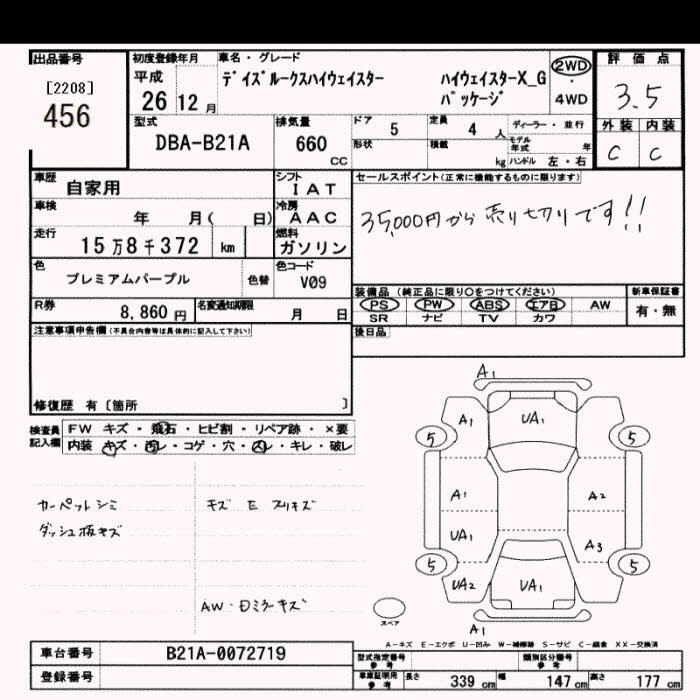 出品番号
[2208]
456
初度登録年月
平成
26 12 月
車名・グレード
デイズルークスハイウェイスター ハイウェイスターX_G
パッケージ
2WD
・
4WD
評価点
3.5
外装 内装
C C
型式
DBA-B21A
排気量
660
CC
ドア 5
定員 4 人
ディーラー・並行
形状
積載 kg
モデル年式 年
ハンドル 左・右
車歴 自家用
シフト
IAT
車検 年 月( 日)
冷房
AAC
走行 15万8千372 km
燃料
ガソリン
色 プレミアムパープル 色替
色コード
V09
R券 8,860 円
名変通知期限 月 日
セールスポイント(正常に機能するものに限ります)
35,000円から売り切りです!!
装備品 (純正品に限り〇をつけてください)
PS PW ABS エアB AW
SR ナビ TV カワ
新車保証書
有・無
後日品
注意事項申告欄(不具合内容等は具体的に記入して下さい)
修復歴 有〔箇所 〕
検査員
記入欄
FW キズ・飛石・ヒビ割・リペア跡・×要
内装 キズ・汚レ・コゲ・穴・スレ・キレ・破レ
カーペットシミ
ダッシュ板キズ
キズ E スリキズ
AW・Dミラーキズ
A1
A1 UA1
5 5
A1 A2
UA1 A3
5 5
UA2 UA1
A1
スペア
A-キズ E-エクボ U-凹み W-補修跡 S-サビ C-腐食 XX-交換済
車台番号 B21A-0072719
登録番号
型式指定番号
参考
類別区分番号
参考
車庫証明用
参考
長さ 339 cm 幅 147 cm 高さ 177 cm